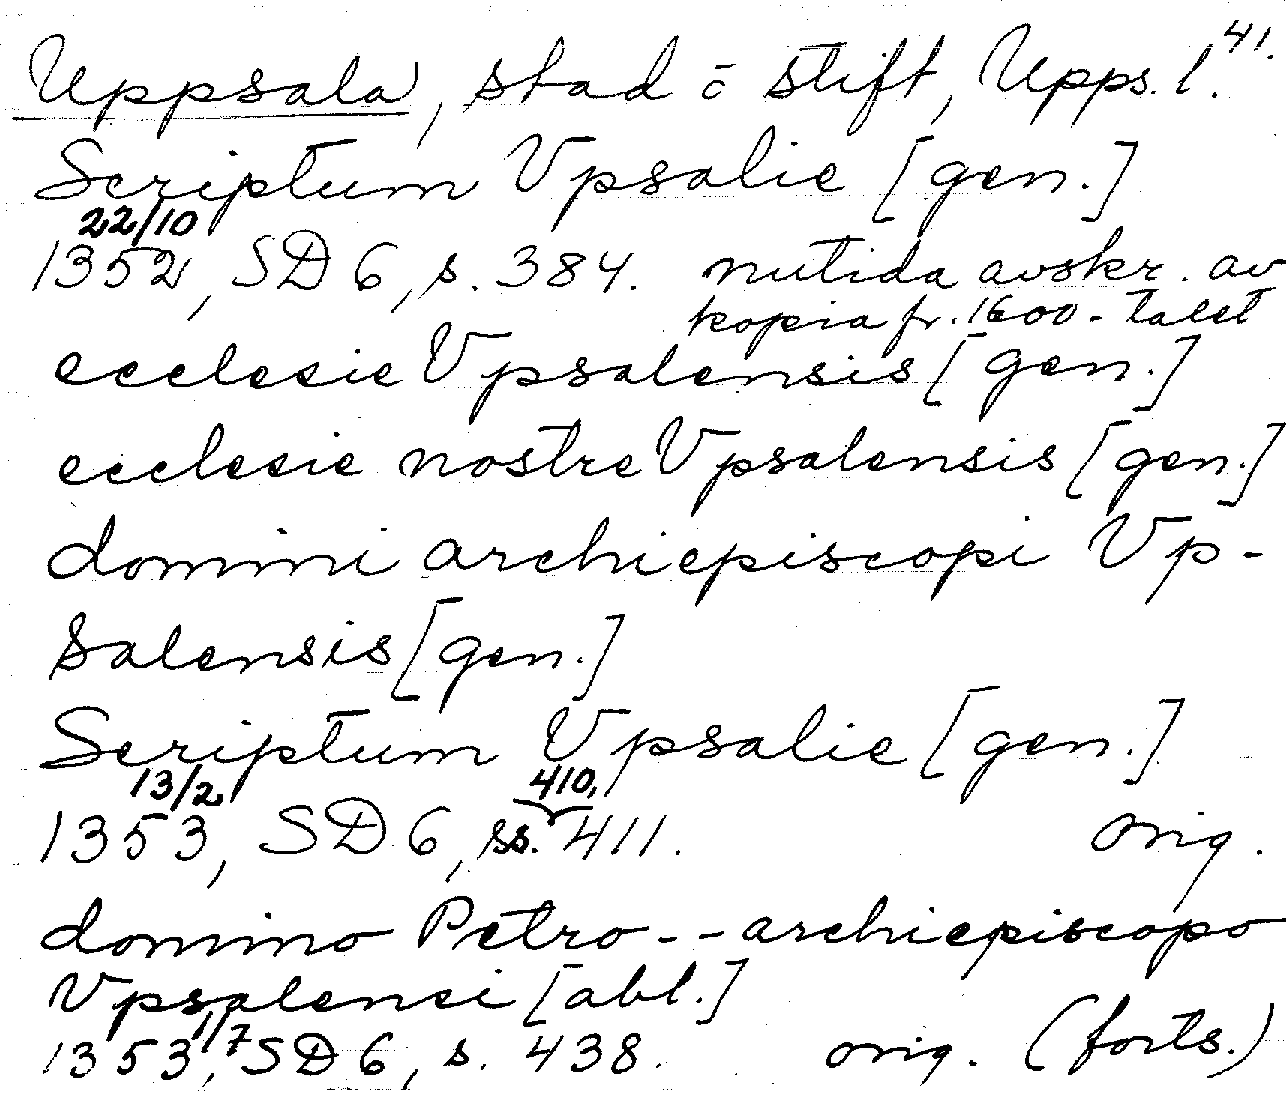 Uppsala, stad o stift, Upps. l. 41.
Scriptum Vpsalie [gen.]
22/10
1352, SD 6, s. 384. nutida avskr. av
kopia fr. 1600-talet
ecclesie Vpsalensis [gen.]
ecclesie nostre Vpsalensis [gen.]
domini archiepiscopi Vp-
salensis [gen.]
Scriptum Vpsalie [gen.]
13/2 410,
1353, SD 6, ss. 411. orig.
domino Petro -- archiepiscopo
Vpsalensi [abl.]
1353, 1/7 SD 6, s. 438. orig. (forts.)